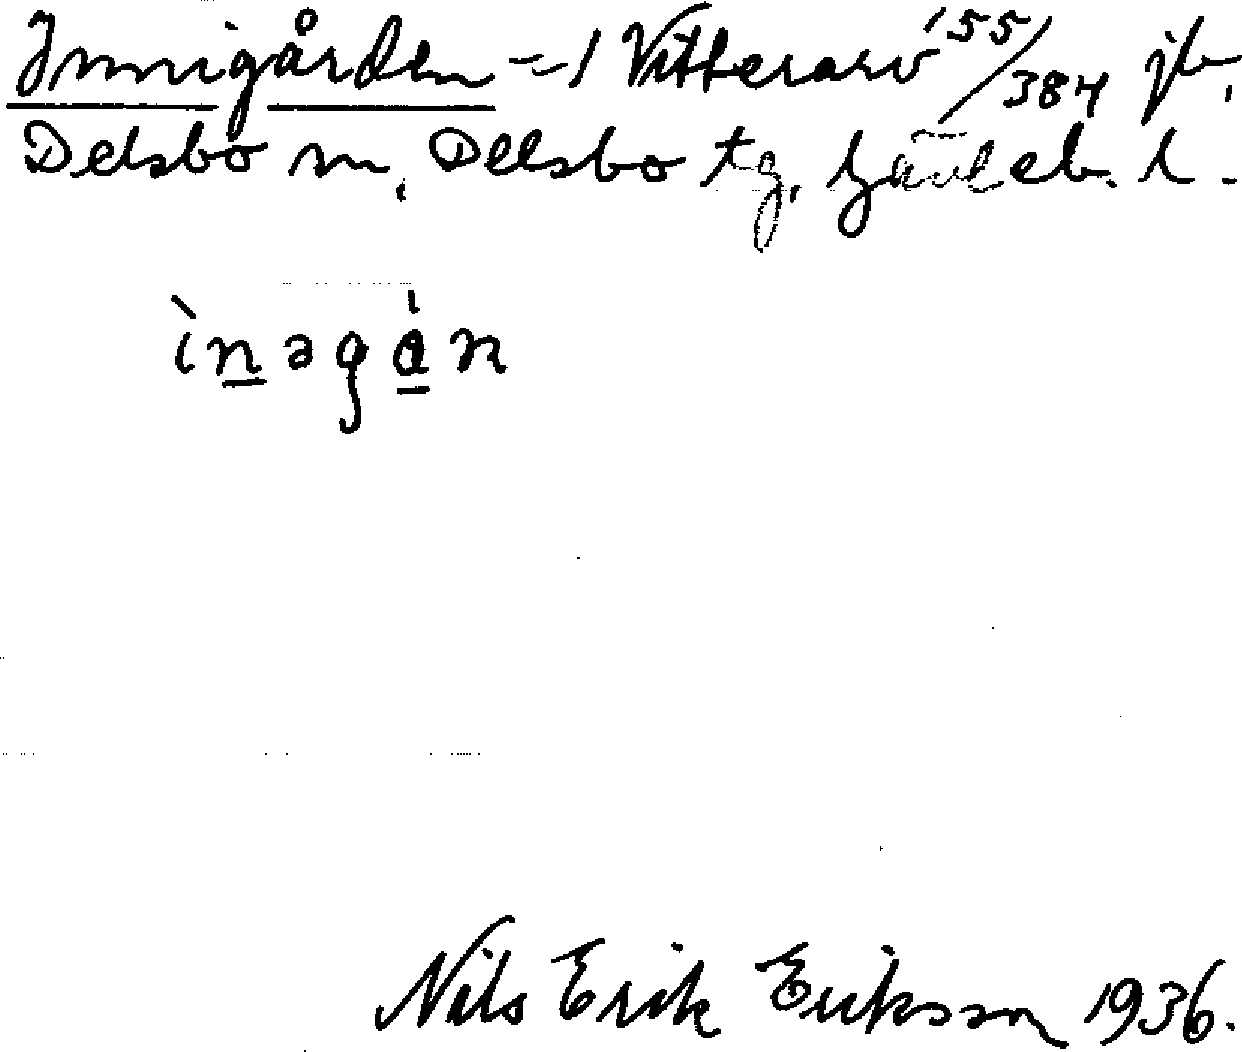 Innigården = 1 Vitterarv 55/384 jb.
Delsbo sn, Delsbo tg, Gävleb. l.
ìnəgån
Nils Erik Eriksson 1936.